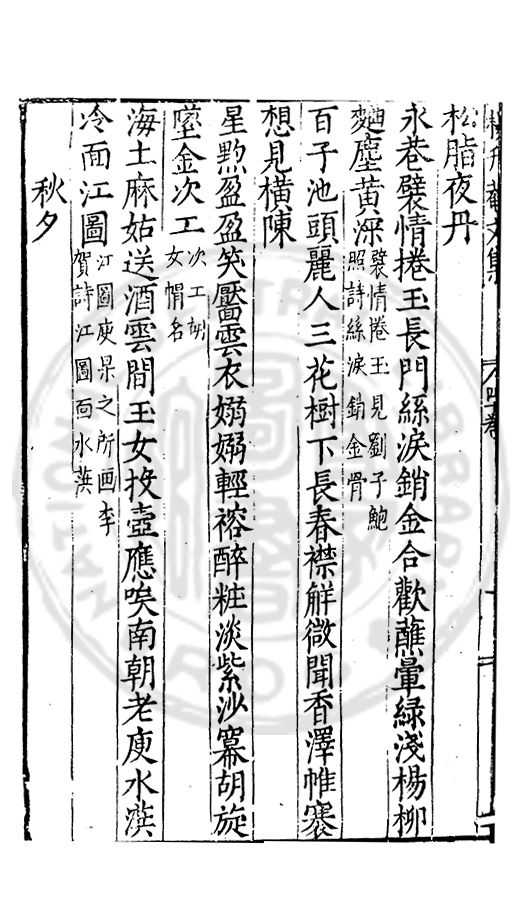 松脂夜丹
永巷襞情捲玉長門絲淚銷金合歡蘸暈綠淺楊柳
麴塵黃深襞情捲玉見劉子鮑
照詩絲淚銷金骨
百子池頭麗人三花樹下長春襟解微聞香澤帷褰
想見橫陳
星㸃盈盈笑靨雲衣嫋嫋輕褣醉粧淡紫沙冪胡旋
墜金次工次工胡
女帽名
海土麻姑送酒雲間玉女投壺應唉南朝老庾水蒎
冷面江圖江圖庾杲之所画李
賀詩江圖画水蒎
秋夕